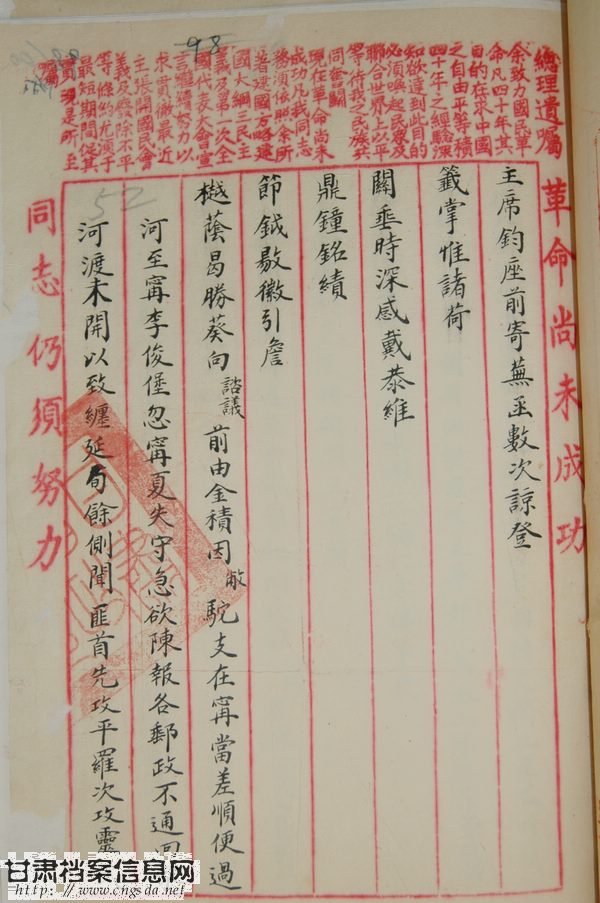 98
總理遺囑
余致力國民革
命凡四十年其
目的在求中國
之自由平等積
四十年之經驗深
知欲達到此目的
必須喚起民眾及
聯合世界上以平
等待我之民族共
同奮鬬
現在革命尚未
成功凡我同志
務須依照余所
著建國方略建
國大綱三民主
義及第一次全
國代表大會宣
言繼續努力以
求貫徹最近
主張開國民會
議及廢除不平
等條約尤須于
最短期間促其
實現是所至
囑
革命尚未成功
主席鈞座前寄蕪函數次諒登
籤掌惟諸荷
關垂時深感戴恭維
鼎鐘銘績
節鉞勗徽引詹
樾蔭曷勝葵向諮議前由金積因敝駝支在甯當差順便過
河至甯李俊堡忽甯夏失守急欲陳報各郵政不通回
河渡未開以致纏延旬餘側聞匪首先攻平羅次攻靈
同志仍須努力
52
甘肃档案信息网
http://www.cngsda.net/